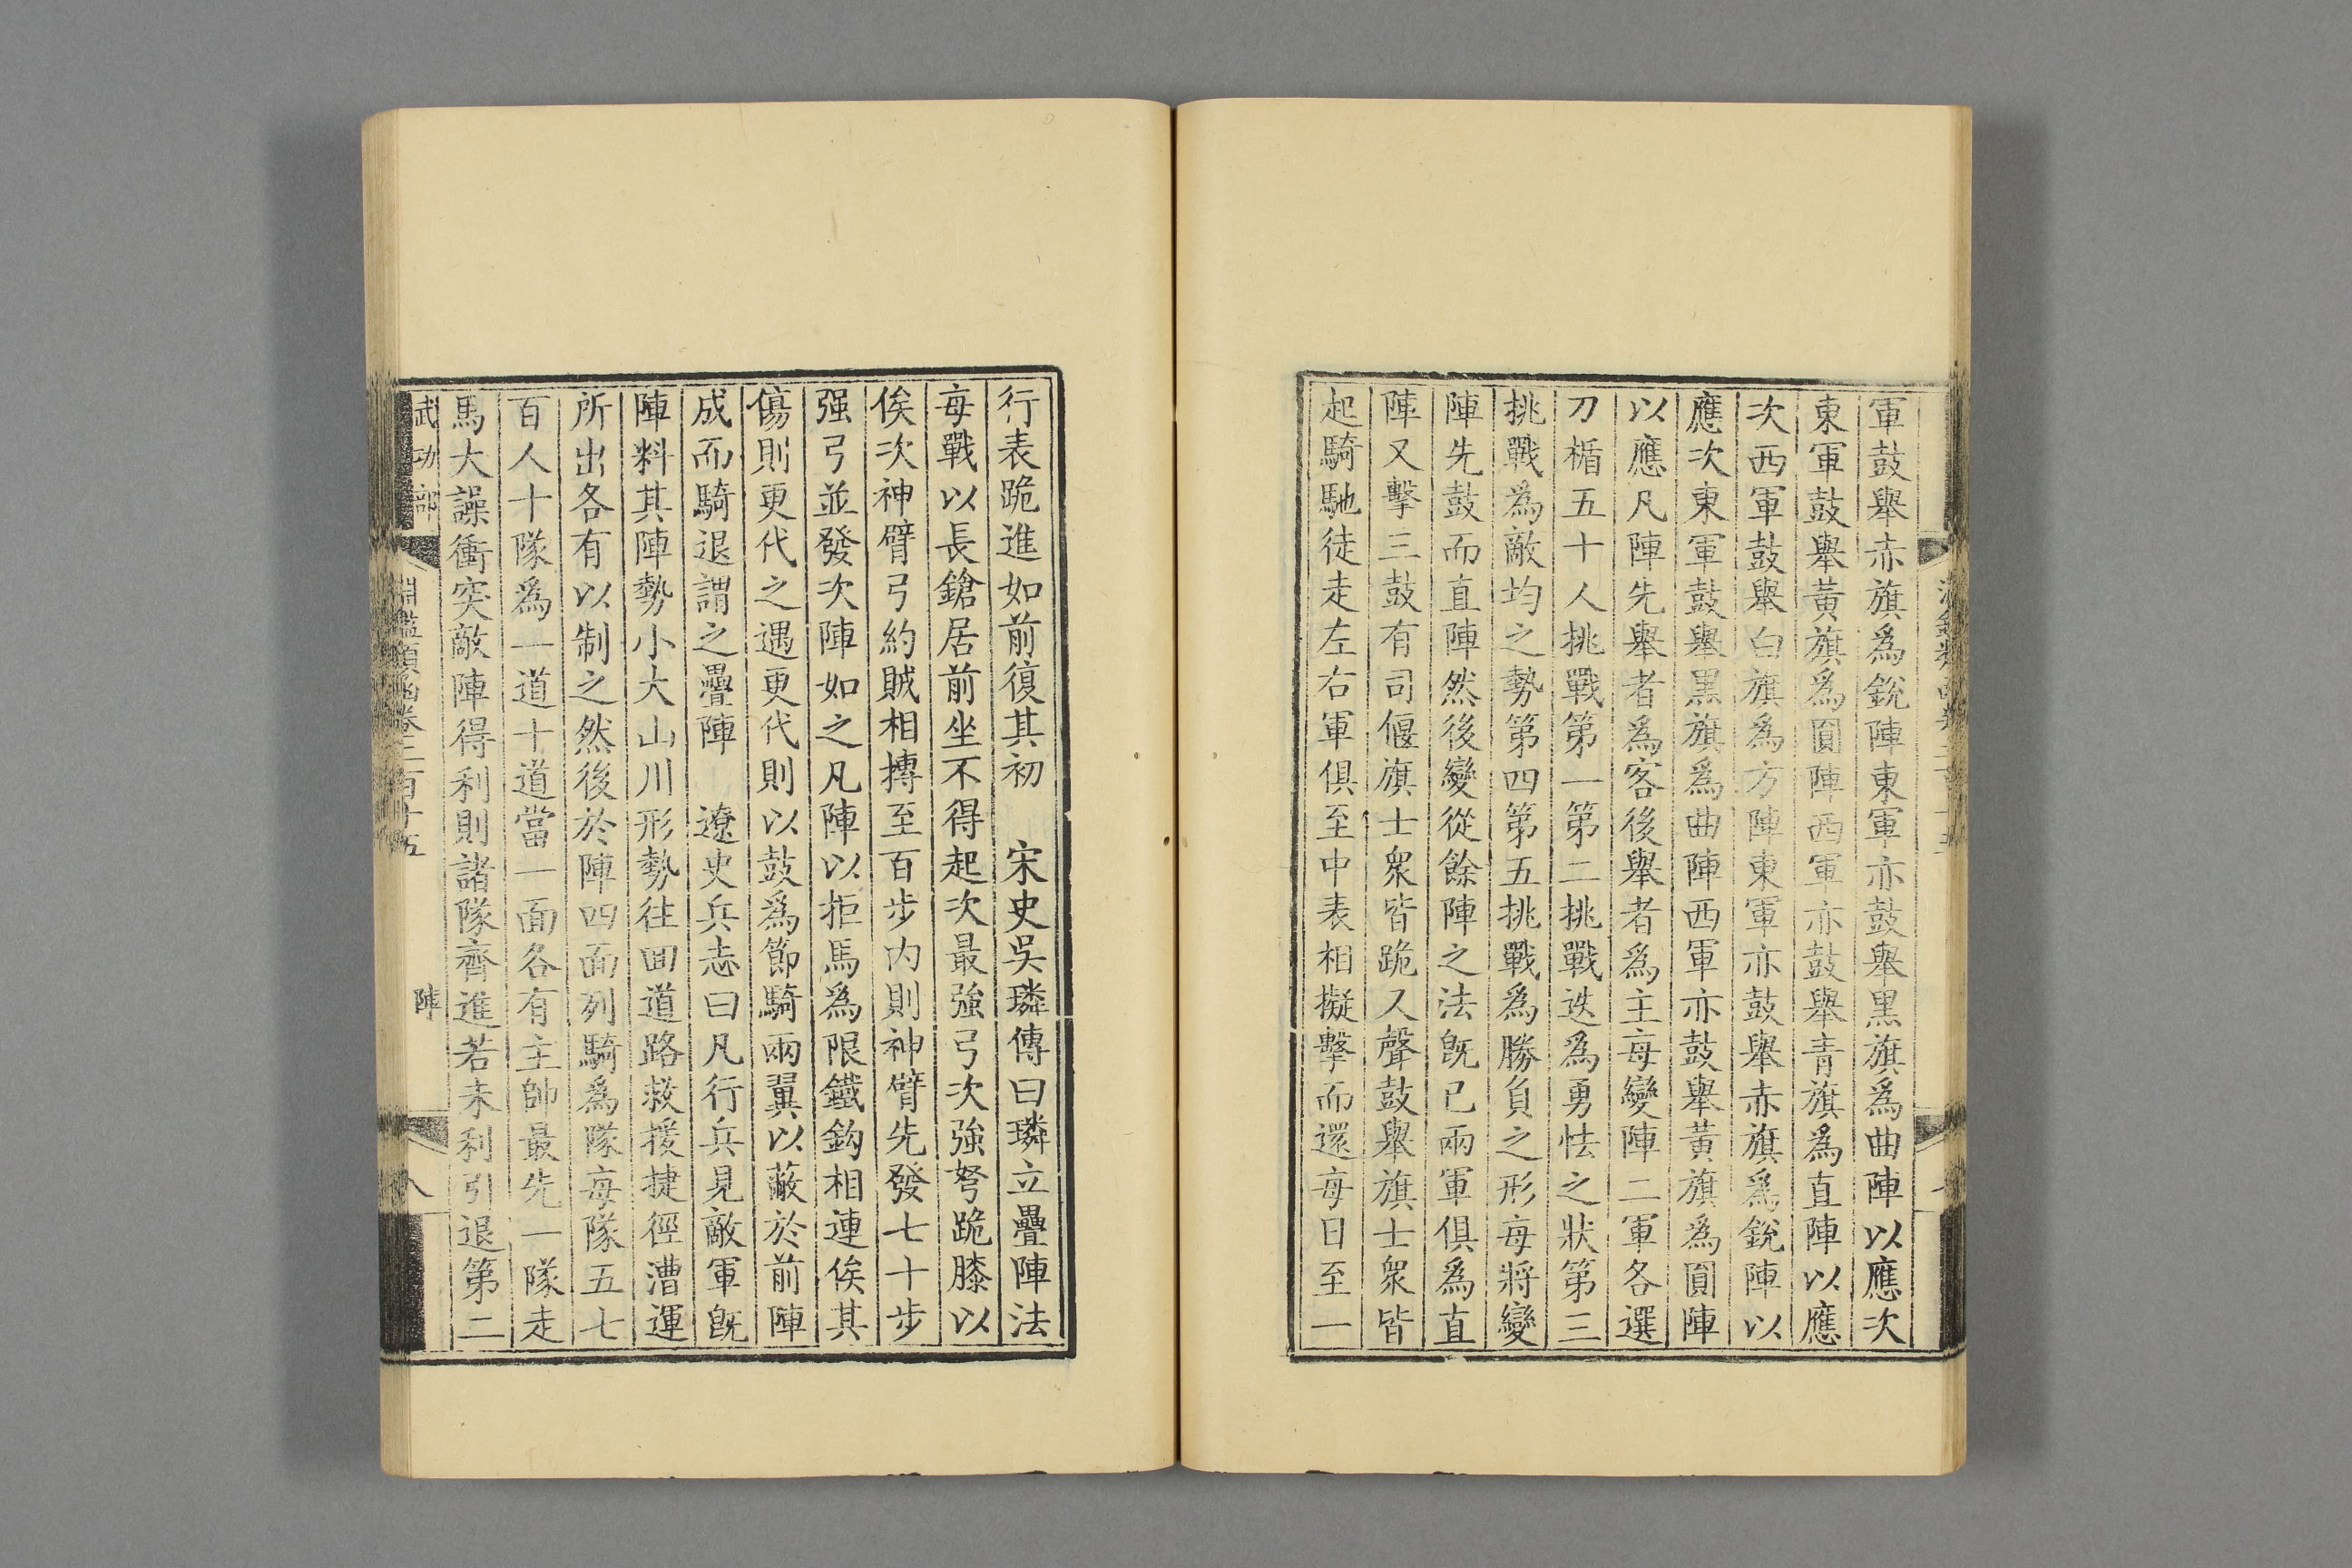 軍鼓舉赤旗爲銳陣東軍亦鼓舉黑旗爲曲陣以應次
東軍鼓舉黃旗爲圓陣西軍亦鼓舉青旗爲直陣以應
次西軍鼓舉白旗爲方陣東軍亦鼓舉赤旗爲銳陣以
應次東軍鼓舉黑旗爲曲陣西軍亦鼓舉黃旗爲圓陣
以應凡陣先舉者爲客後舉者爲主每變陣二軍各選
刀楯五十人挑戰第一第二挑戰迭爲勇怯之狀第三
挑戰爲敵均之勢第四第五挑戰爲勝負之形每將變
陣先鼓而直陣然後變從餘陣之法旣已兩軍俱爲直
陣又擊三鼓有司偃旗士衆皆跪又聲鼓舉旗士衆皆
起騎馳徒走左右軍俱至中表相擬擊而還每日至一
行表跪進如前復其初　宋史吳璘傳曰璘立疊陣法
每戰以長鎗居前坐不得起次最強弓次強弩跪膝以
俟次神臂弓約賊相摶至百步内則神臂先發七十步
强弓並發次陣如之凡陣以拒馬爲限鐵鈎相連俟其
傷則更代之遇更代則以鼓爲節騎兩翼以蔽於前陣
成而騎退謂之疊陣　遼史兵志曰凡行兵見敵軍旣
陣料其陣勢小大山川形勢往回道路救援捷徑漕運
所出各有以制之然後於陣四面列騎爲隊每隊五七
百人十隊爲一道十道當一面各有主帥最先一隊走
馬大譟衝突敵陣得利則諸隊齊進若未利引退第二
武功部　淵鑑類函卷二百十五　陣　八